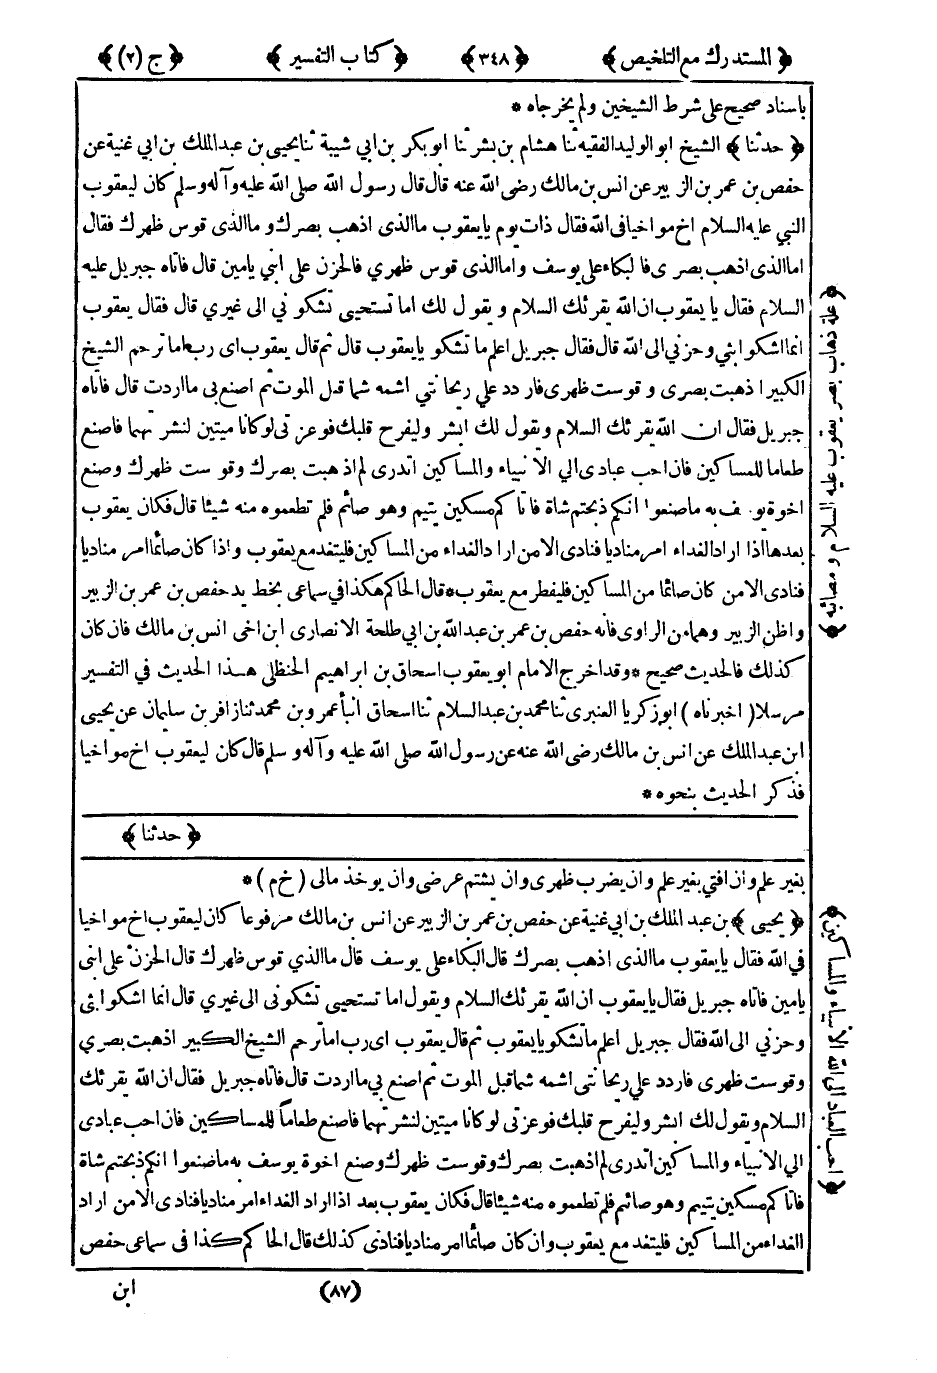 ﴿ المستدرك مع التلخيص ﴾ ﴿ ٣٤٨ ﴾ ﴿ كتاب التفسير ﴾ ﴿ ج (٢) ﴾
باسناد صحيح على شرط الشيخين ولم يخرجاه *
﴿ حدثنا ﴾ الشيخ ابو الوليد الفقيه ثنا هشام بن بشر ثنا ابو بكر بن ابي شيبة ثنا يحيى بن عبد الملك بن ابي غنية عن
حفص بن عمر بن الزبير عن انس بن مالك رضى الله عنه قال قال رسول الله صلى الله عليه وآله وسلم كان ليعقوب
النبي عليه السلام اخ مواخيا فى الله فقال ذات يوم يا يعقوب ما الذى اذهب بصرك وما الذى قوس ظهرك فقال
اما الذى اذهب بصرى فالبكاء على يوسف واما الذى قوس ظهري فالحزن على ابني يامين قال فاتاه جبريل عليه
السلام فقال يا يعقوب ان الله يقرئك السلام ويقول لك اما تستحيى تشكوني الى غيري قال فقال يعقوب
انما اشكوا بثي وحزني الى الله قال فقال جبريل اعلم ما تشكو يا يعقوب قال ثم قال يعقوب اى رب اما ترحم الشيخ
الكبير اذهبت بصرى وقوست ظهرى فاردد علي ريحانتي اشمه شما قبل الموت ثم اصنع بى ما اردت قال فاتاه
جبريل فقال ان الله يقرئك السلام ويقول لك ابشر وليفرح قلبك فوعزتى لو كانا ميتين لنشرتهما فاصنع
طعاما للمساكين فان احب عبادى الي الانبياء والمساكين اتدرى لم اذهبت بصرك وقوست ظهرك وصنع
اخوة يوسف به ما صنعوا انكم ذبحتم شاة فاتاكم مسكين يتيم وهو صائم فلم تطعموه منه شيئا قال فكان يعقوب
بعدها اذا اراد الغداء امر مناديا فنادى الا من اراد الغداء من المساكين فليتغد مع يعقوب واذا كان صائما امر مناديا
فنادى الا من كان صائما من المساكين فليفطر مع يعقوب * قال الحاكم هكذا في سماعى بخط يد حفص بن عمر بن الزبير
واظن الزبير وهما من الراوى فانه حفص بن عمر بن عبد الله بن ابي طلحة الانصارى ابن اخى انس بن مالك فان كان
كذلك فالحديث صحيح * وقد اخرج الامام ابو يعقوب اسحاق بن ابراهيم الحنظلى هذا الحديث في التفسير
مرسلا ( اخبرناه ) ابو زكريا العنبرى ثنا محمد بن عبد السلام ثنا اسحاق انبأ عمرو بن محمد ثنا زافر بن سليمان عن يحيى
ابن عبد الملك عن انس بن مالك رضى الله عنه عن رسول الله صلى الله عليه وآله وسلم قال كان ليعقوب اخ مواخيا
فذكر الحديث بنحوه *
﴿ حدثنا ﴾
بغير علم وان افتي بغير علم وان يضرب ظهرى وان يشتم عرضى وان يوخذ مالى ( خ م ) *
﴿ يحيى ﴾ بن عبد الملك بن ابي غنية عن حفص بن عمر بن الزبير عن انس بن مالك مرفوعا كان ليعقوب اخ مواخيا
في الله فقال يا يعقوب ما الذى اذهب بصرك قال البكاء على يوسف قال ما الذي قوس ظهرك قال الحزن على ابنى
يامين فاتاه جبريل فقال يا يعقوب ان الله يقرئك السلام ويقول اما تستحيى تشكونى الى غيري قال انما اشكوا بثي
وحزني الى الله فقال جبريل اعلم ما تشكو يا يعقوب ثم قال يعقوب اى رب اما ترحم الشيخ الكبير اذهبت بصري
وقوست ظهرى فاردد علي ريحانتى اشمه شما قبل الموت ثم اصنع بي ما اردت قال فاتاه جبريل فقال ان الله يقرئك
السلام ويقول لك ابشر وليفرح قلبك فوعزتى لو كانا ميتين لنشرتهما فاصنع طعاماً للمساكين فان احب عبادى
الي الانبياء والمساكين اتدرى لم اذهبت بصرك وقوست ظهرك وصنع اخوة يوسف به ما صنعوا انكم ذبحتم شاة
فاتاكم مسكين يتيم وهو صائم فلم تطعموه منه شيئا قال فكان يعقوب بعد اذا اراد الغداء امر مناديا فنادى الا من اراد
الغداء من المساكين فليتغد مع يعقوب وان كان صائما امر مناديا فنادى كذلك قال الحاكم كذا فى سماعى حفص
(٨٧) ابن
﴿ علة ذهاب بصر يعقوب عليه السلام ومصائبه ﴾
﴿ احب العباد الى الله الانبياء والمساكين ﴾